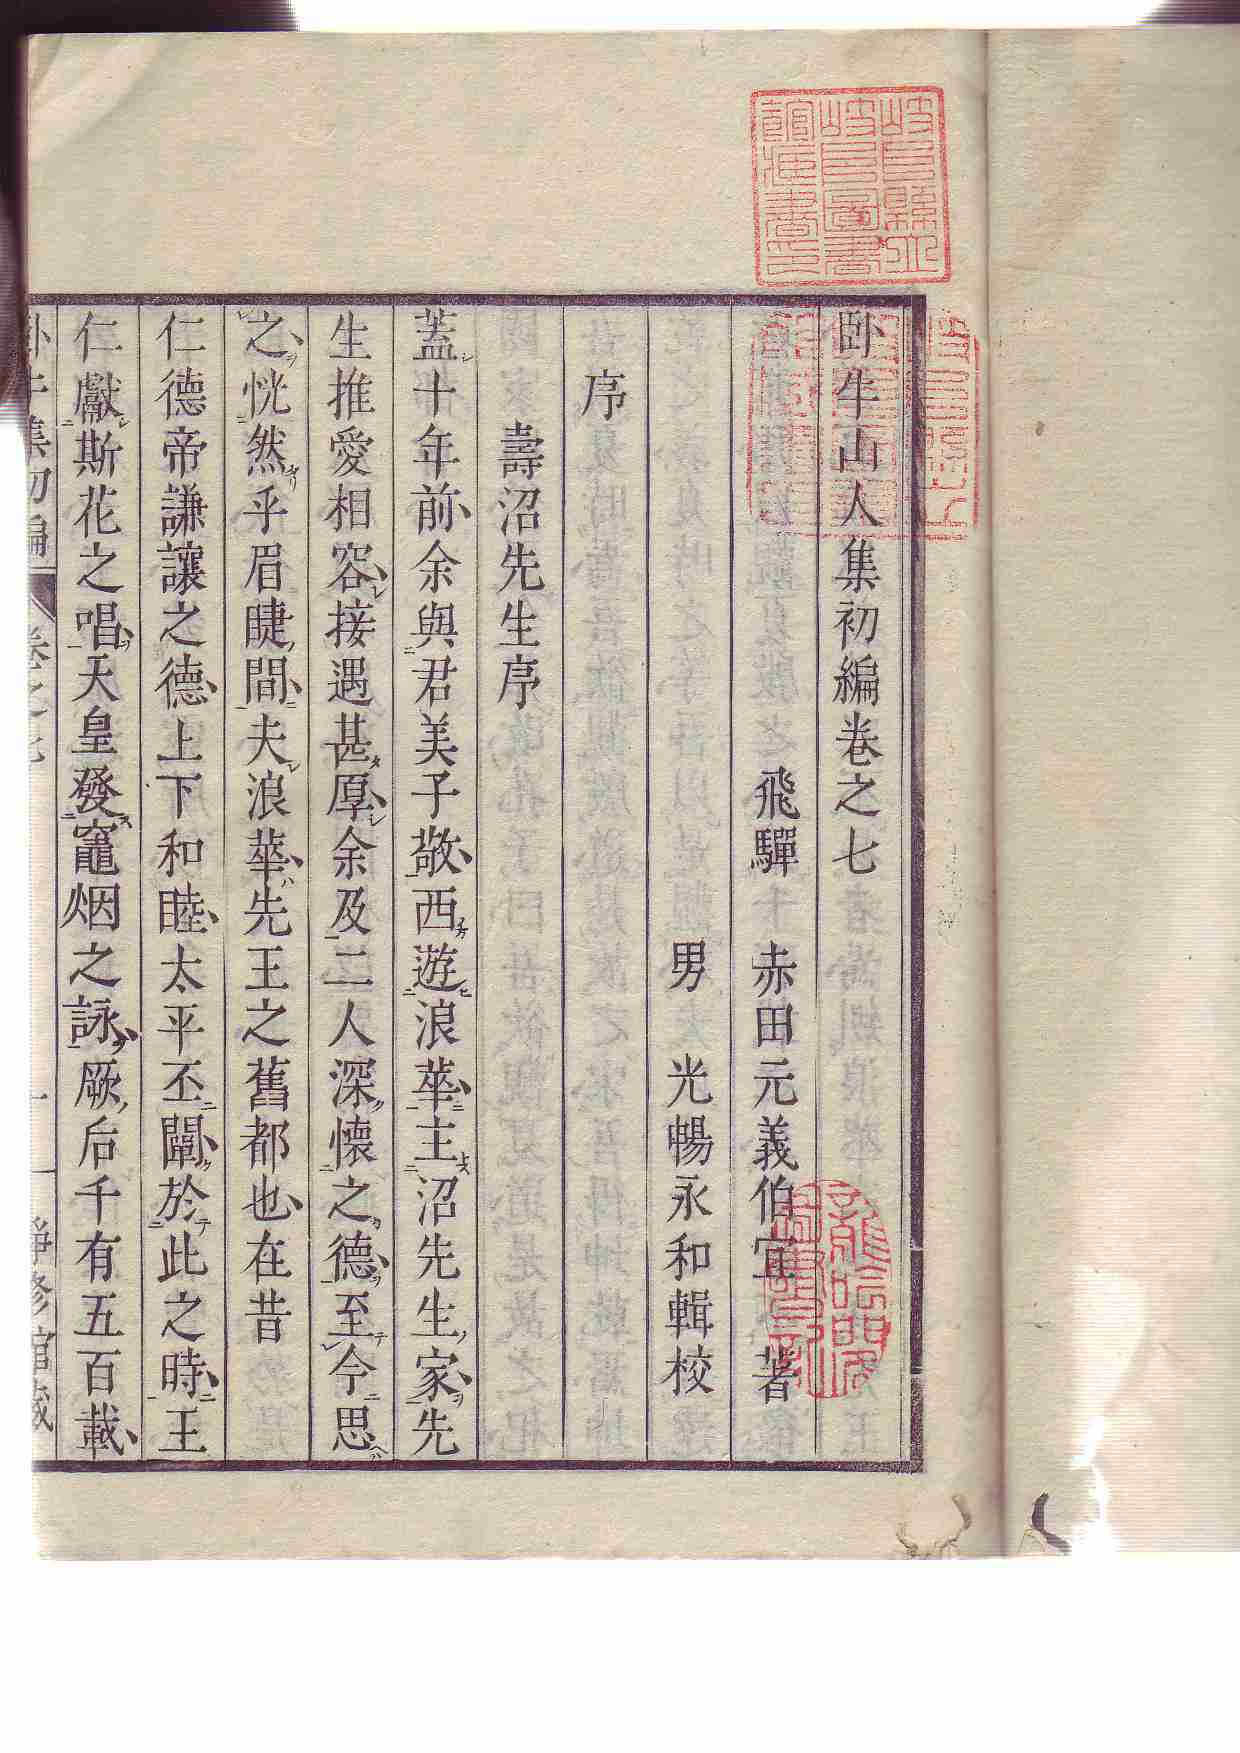 臥牛山人集初編卷之七
飛驒 赤田元義伯宜著
男 光暢永和輯校
序
壽沼先生序
蓋十年前余與君美予敬西遊浪華主沼先生家先
生推愛相容接遇甚厚余及二人深懷之德至今思
之恍然乎眉睫間夫浪華先王之舊都也在昔
仁德帝謙讓之德上下和睦太平丕闡於此之時王
仁獻斯花之唱天皇發竈烟之詠厥后千有五百載